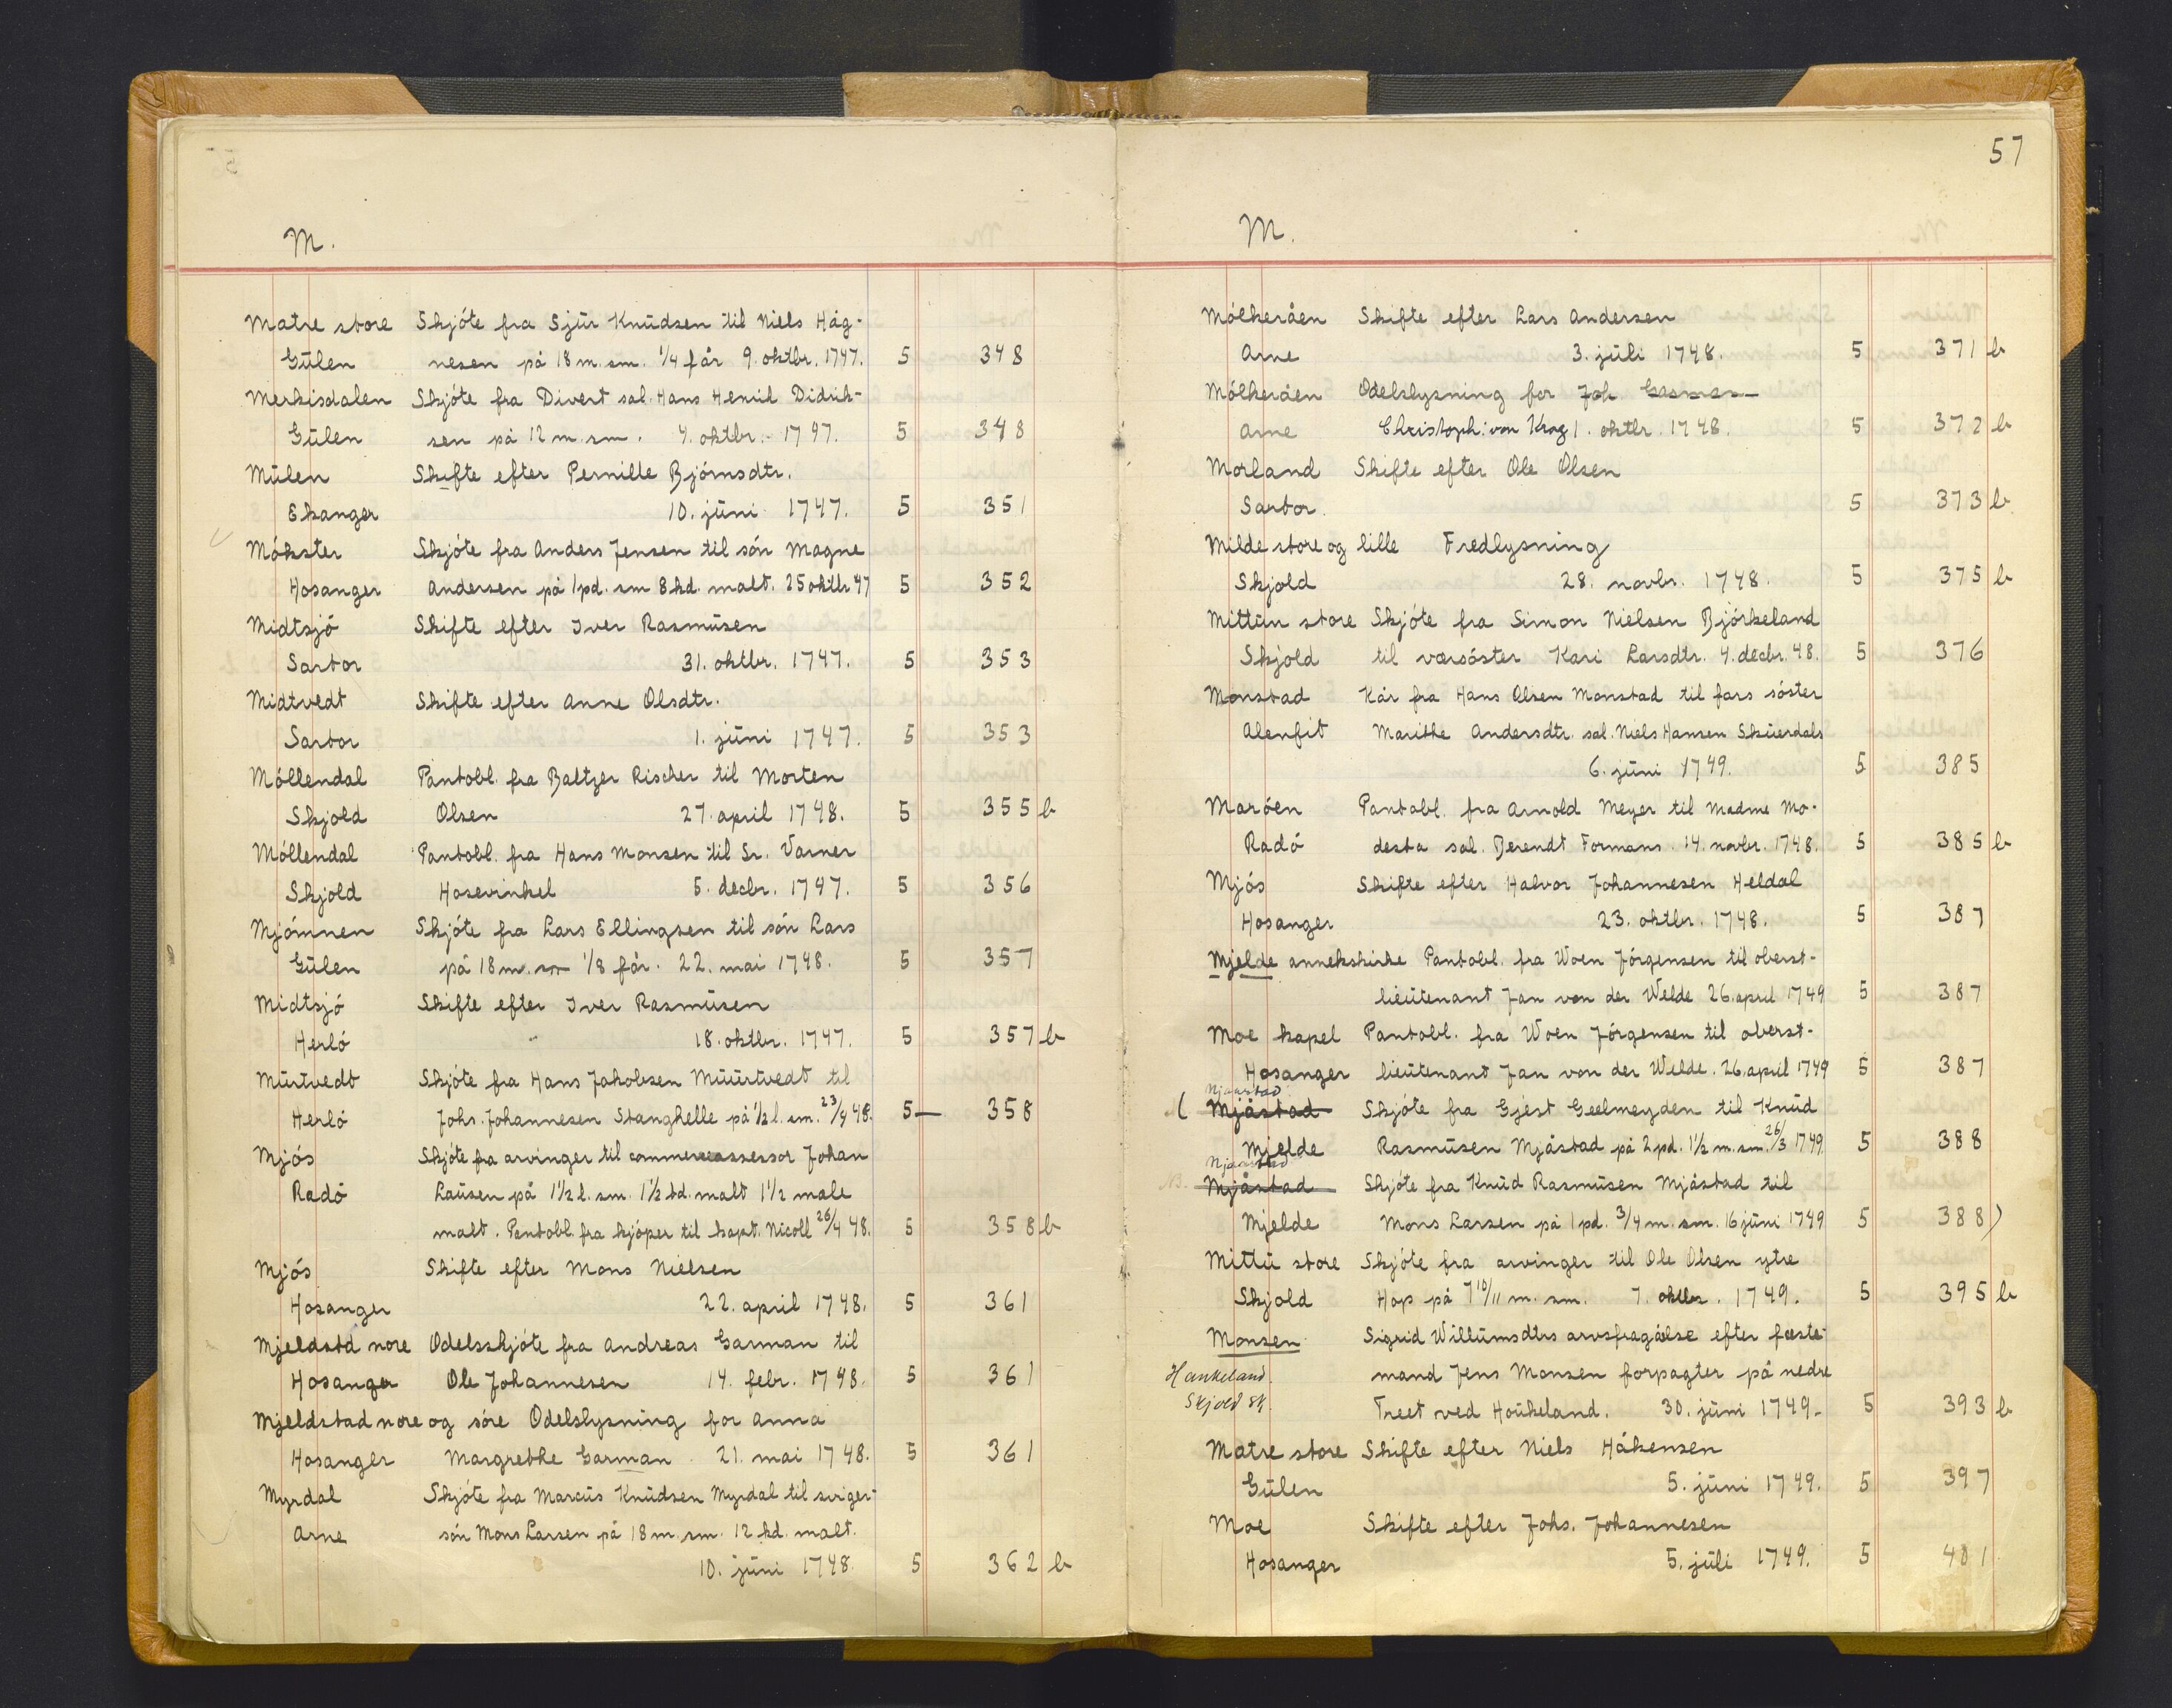 M.
Matre store Skjóte fra Sjür Knüdsen til Niels Håg-
Gülen nesen på 18 m. sm. 1/4 får 9. oktbr. 1747. 5 348
Merkisdalen Skjóte fra Divert sal. Hans Henrik Didrik-
Gülen sen på 12 m. sm. 4. oktbr. 1747. 5 348
Mülen Skifte efter Pernille Bjórnsdtr.
Ekanger 10. jüni 1747. 5 351
Mókster Skjóte fra Anders Jensen til són Magne
Hosanger Andersen på 1 pd. sm 8 kd. malt. 25 oktbr 47 5 352
Midtsjó Skifte efter Iver Rasmüsen
Sartor 31. oktbr. 1747. 5 353
Midtvedt Skifte efter Anne Olsdtr.
Sartor 1. jüni 1747. 5 353
Móllendal Pantobl. fra Baltzer Rischer til Morten
Skjold Olsen 27. april 1748. 5 355 b
Móllendal Pantobl. fra Hans Monsen til Sr. Varner
Skjold Hosewinkel 5. decbr. 1747. 5 356
Mjómnen Skjóte fra Lars Ellingsen til són Lars
Gülen på 18 m. sm 1/8 får. 22. mai 1748. 5 357
Midtsjó Skifte efter Iver Rasmüsen
Herló 18. oktbr. 1747. 5 357 b
Mürtvedt Skjóte fra Hans Jakobsen Müürtvedt til
Herló Johs. Johannesen Stanghelle på 1/2 l. sm. 23/4 48. 5 — 358
Mjós Skjóte fra arvinger til commerceassessor Johan
Radó Laüsen på 1 1/2 l. sm. 1 1/2 td. malt 1 1/2 male
malt. Pantobl. fra kjóper til kapt. Nicoll 26/4 48. 5 358 b
Mjós Skifte efter Mons Nielsen
Hosanger 22. april 1748. 5 361
Mjeldstd nore Odelsskjóte fra Andreas Garman til
Hosanger Ole Johannesen 14. febr. 1748. 5 361
Mjeldstad nore og sóre Odelslysning for Anna
Hosanger Margrethe Garman 21. mai 1748. 5 361
Myrdal Skjóte fra Marcüs Knüdsen Myrdal til sviger-
Arne són Mons Larsen på 18 m. sm. 12 kd. malt.
10. jüni 1748. 5 362 b
57
M.
Mólkeråen Skifte efter Lars Andersen
Arne 3. jüli 1748. 5 371 b
Mólkeråen Odelslysning for Joh
Arne Christoph: von Krog 1. oktbr. 1748. 5 372 b
Morland Skifte efter Ole Olsen
Sartor. 5 373 b
Milde store og lille Fredlysning
Skjold 28. novbr. 1748. 5 375 b
Mittün store Skjóte fra Simon Nielsen Bjórkeland
Skjold til værsóster Kari Larsdtr. 4. decbr. 48. 5 376
Monstad Kår fra Hans Olsen Monstad til fars sóster
Alenfit Marithe Andersdtr. sal. Niels Hansen Sküerdals
6. jüni 1749. 5 385
Maróen Pantobl. fra Arnold Meyer til Madme Mo-
Radó desta sal. Berendt Formans. 14. novbr. 1748. 5 385 b
Mjós Skifte efter Halvor Johannesen Heldal
Hosanger 23. oktbr. 1748. 5 387
Mjelde annekskirke Pantobl. fra Woen Jórgensen til oberst-
lieütenant Jan von der Welde 26. april 1749 5 387
Moe kapel Pantobl. fra Woen Jórgensen til oberst-
Hosanger lieütenant Jan von der Welde. 26. april 1749 5 387
Njaastad
( Mjåstad Skjóte fra Gjest Geelmeyden til Knüd
Mjelde Rasmüsen Mjåstad på 2 pd. 1 1/2 m. sm. 26/3 1749 5 388
Njaastad
Mjåstad Skjóte fra Knüd Rasmüsen Mjåstad til
Mjelde Mons Larsen på 1 pd. 3/4 m. sm. 16 jüni 1749 5 388 )
Mittü store Skjóte fra arvinger til Ole Olsen ytre
Skjold Hop på 7 10/11 m. sm. 7. oktbr. 1749. 5 395 b
Monsen Sigrid Willümsdtrs arvsfragåelse efter fæste-
Haukeland. mand Jens Monsen forpagter på nedre
Skjold sk. Treet ved Hoükeland. 30. jüni 1749. 5 393 b
Matre store Skifte efter Niels Håkensen
Gülen 5. jüni 1749. 5 397
Moe Skifte efter Johs. Johannesen
Hosanger 5. jüli 1749. 5 401